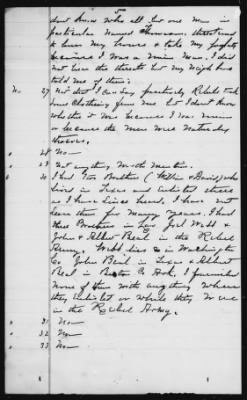 5
dont Know who all but one man in
particular Named Thomason threatened
to burn my house & take my property
because I was a Union Man. I did
not hear the threats but my Neighbors
told me of them.
No 27 Not that I can Say particularly Rebels took
some Clothing from me but I dont Know
whether it was because I was Union
or because the men were Naturally
thieves.
" 28 No
" 29 Not anything worth mention.
" 30 I had two Brothers ( & David) who
lived in Texas and enlisted there
as I have Since heard. I have not
seen them for many years. I had
three Brothers in Law Joel Webb &
John & Albert Beal in the Rebel
Army. Webb lives in Washington
Co John Beal in Texas & Albert
Beal in Benton Co Ark. I furnished
none of them with anything when
they enlisted or while they were
in the Rebel Army.
" 31 No
" 32 No
" 33 No